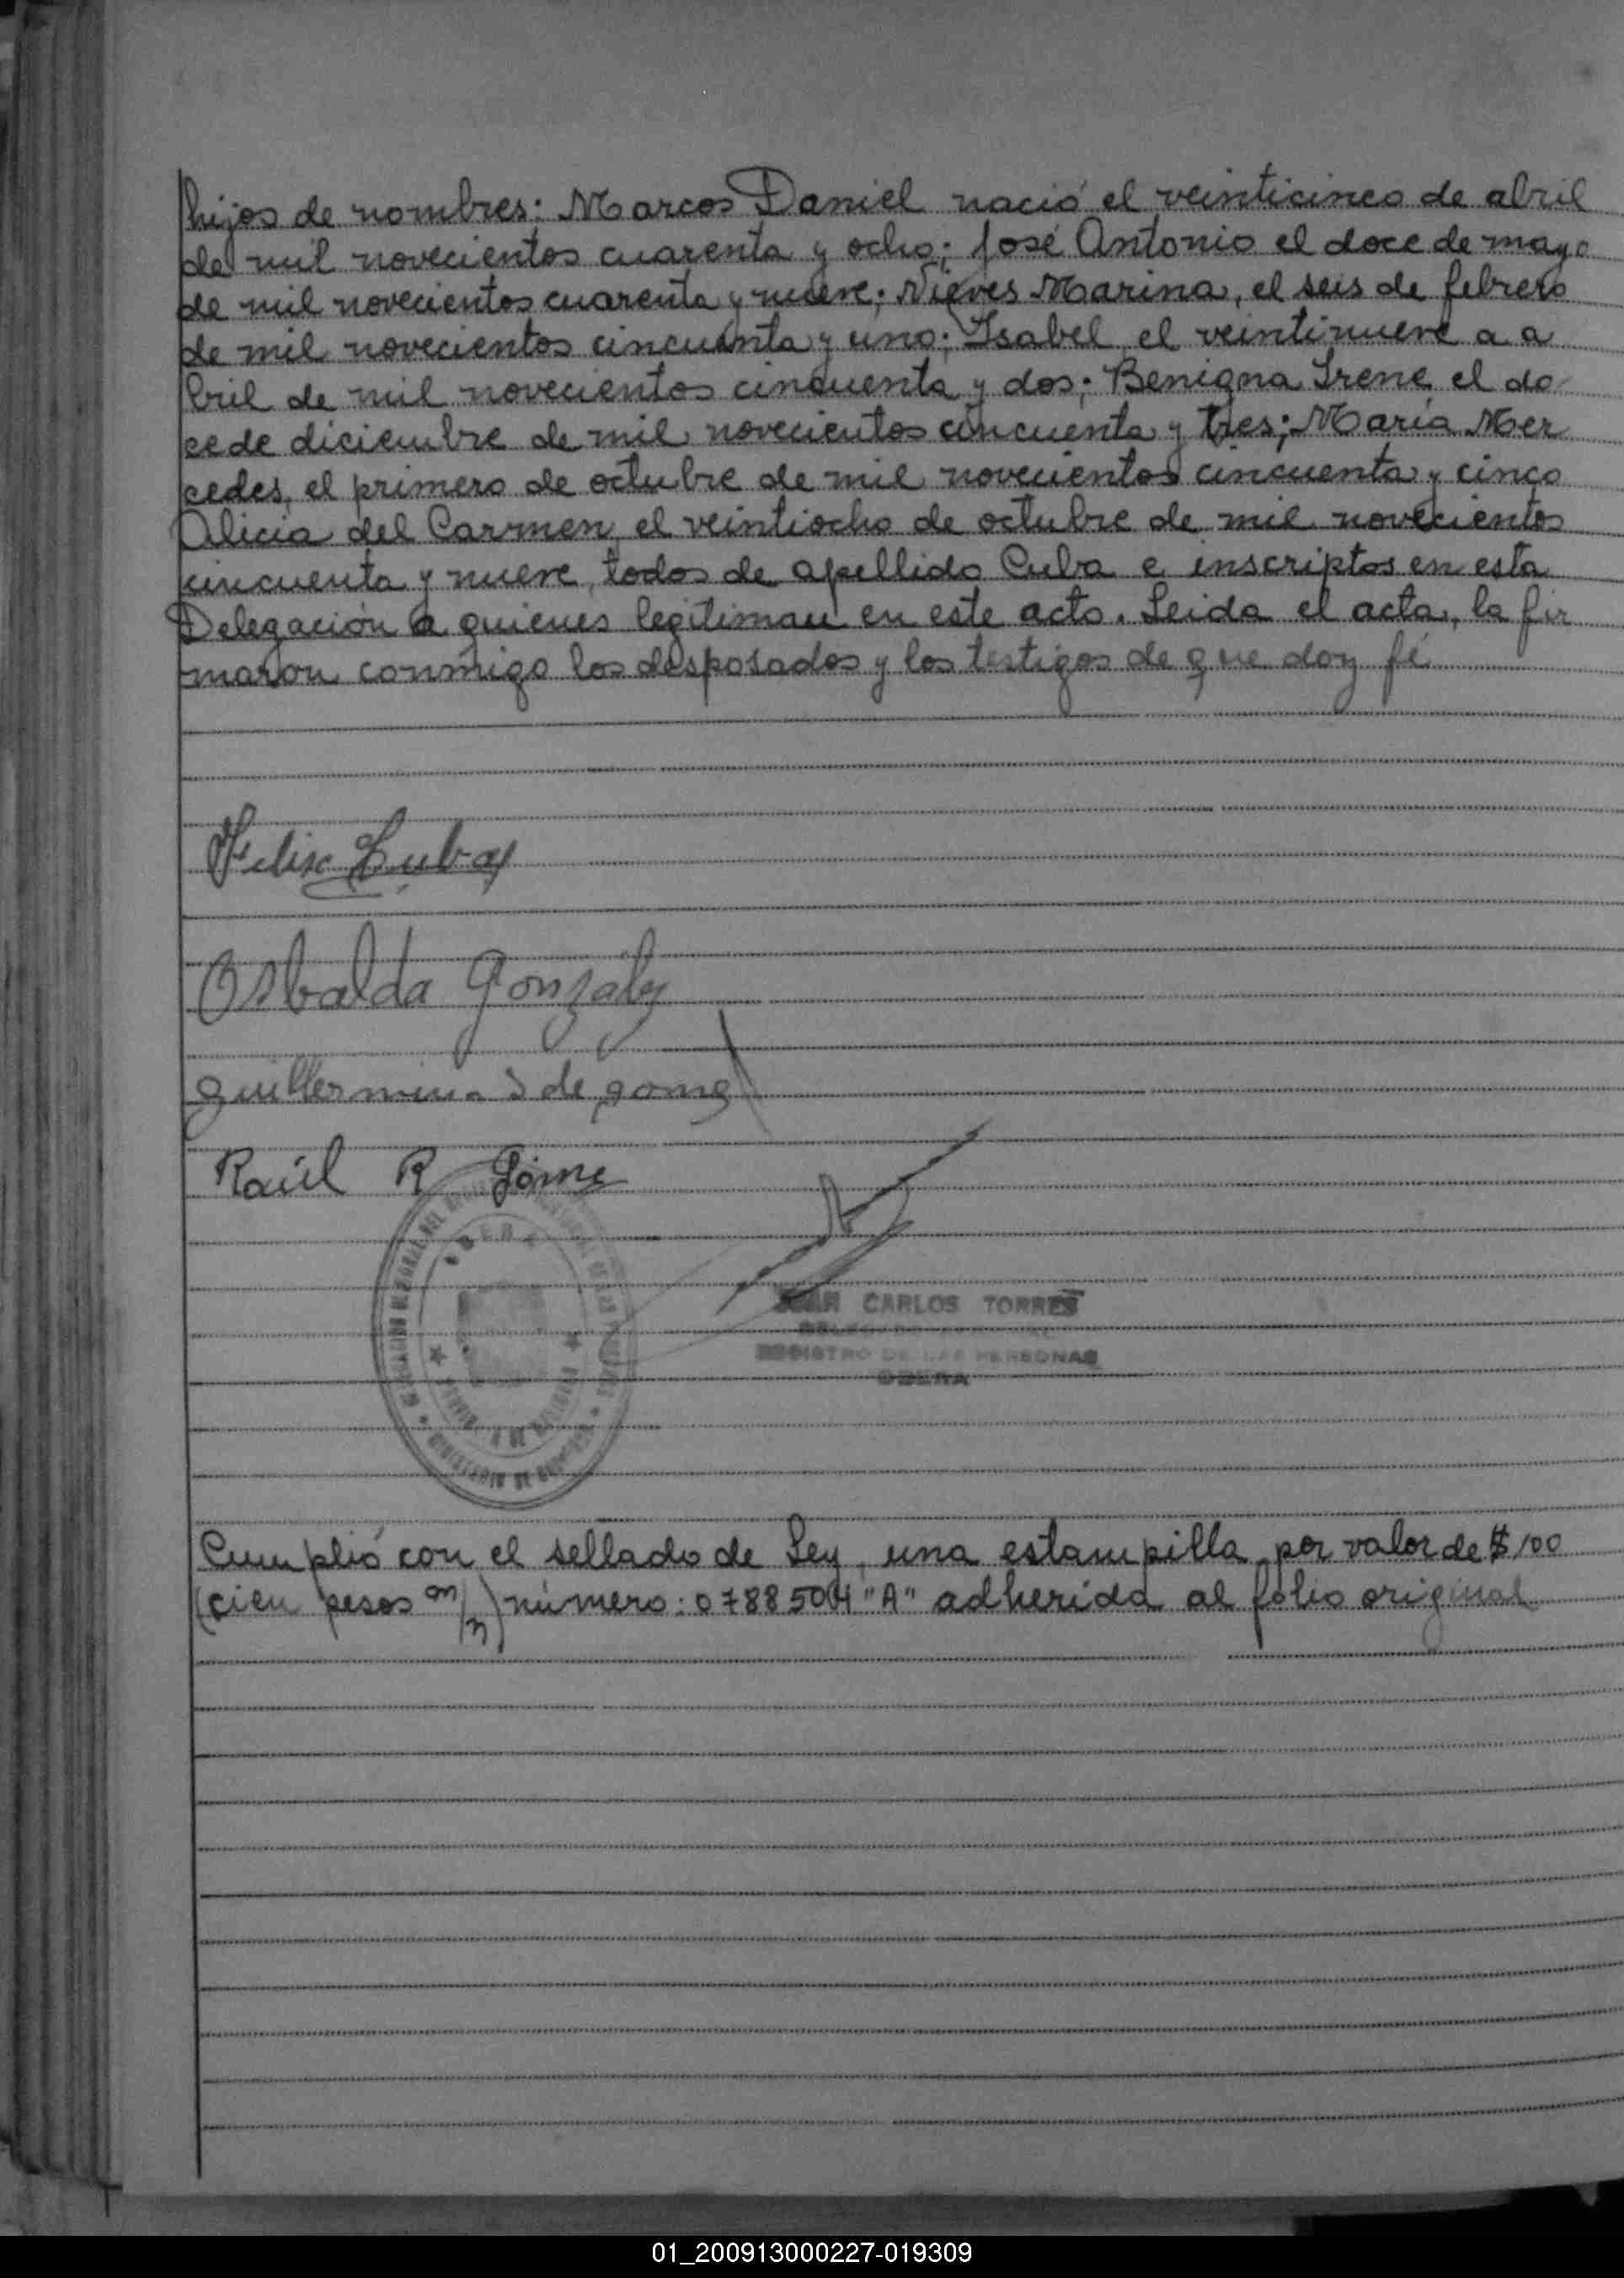 hijos de nombres: Marcos Daniel nació el veinticinco de abril
de mil novecientos cuarenta y ocho; José Antonio el doce de mayo
de mil novecientos cuarenta y nueve; Nieves Marina, el seis de febrero
de mil novecientos cincuenta y uno; Isabel el veintinueve a a
bril de mil novecientos cincuenta y dos; Benigna Irene el do
cede diciembre de mil novecientos cincuenta y tres; María Mer
cedes, el primero de octubre de mil novecientos cincuenta y cinco
Alicia del Carmen, el veintiocho de octubre de mil novecientos
cincuenta y nueve, todos de apellido Cuba e inscriptos en esta
Delegación a quienes legitiman en este acto. Leida el acta, la fir
maron conmigo los desposados y los testigos de que doy fé
Felix Cuba
Osbalda Gonzalez
guillermina S de gomez
Raúl R Gómez
JUAN CARLOS TORRES
REGISTRO DE LAS PERSONAS
OBERA
Cumplió con el sellado de Ley, una estampilla por valor de $ 100
(cien pesos m/n) número: 0788504 "A" adherida al folio original
01_200913000227-019309